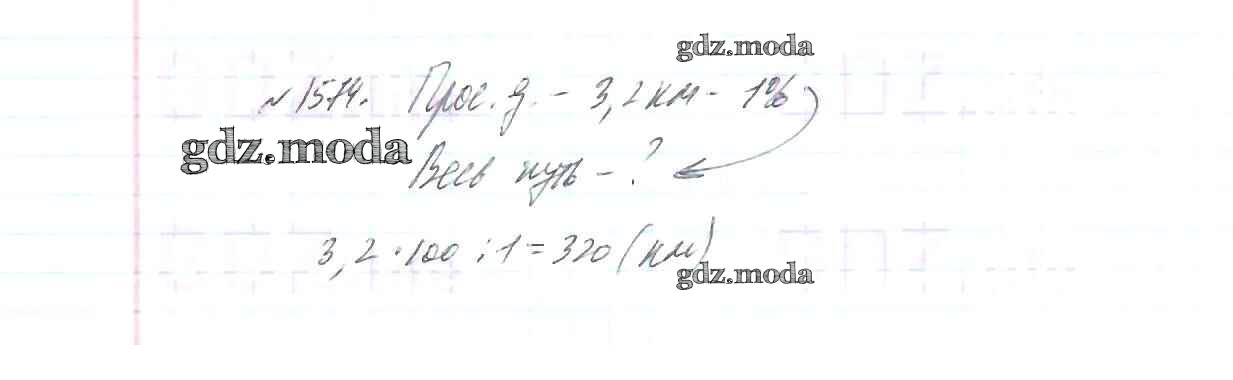 gdz.moda
№ 1574. Прос. д. – 3,2 км – 1%
gdz.moda
Весь путь – ?
3,2 · 100 : 1 = 320 (км)
gdz.moda